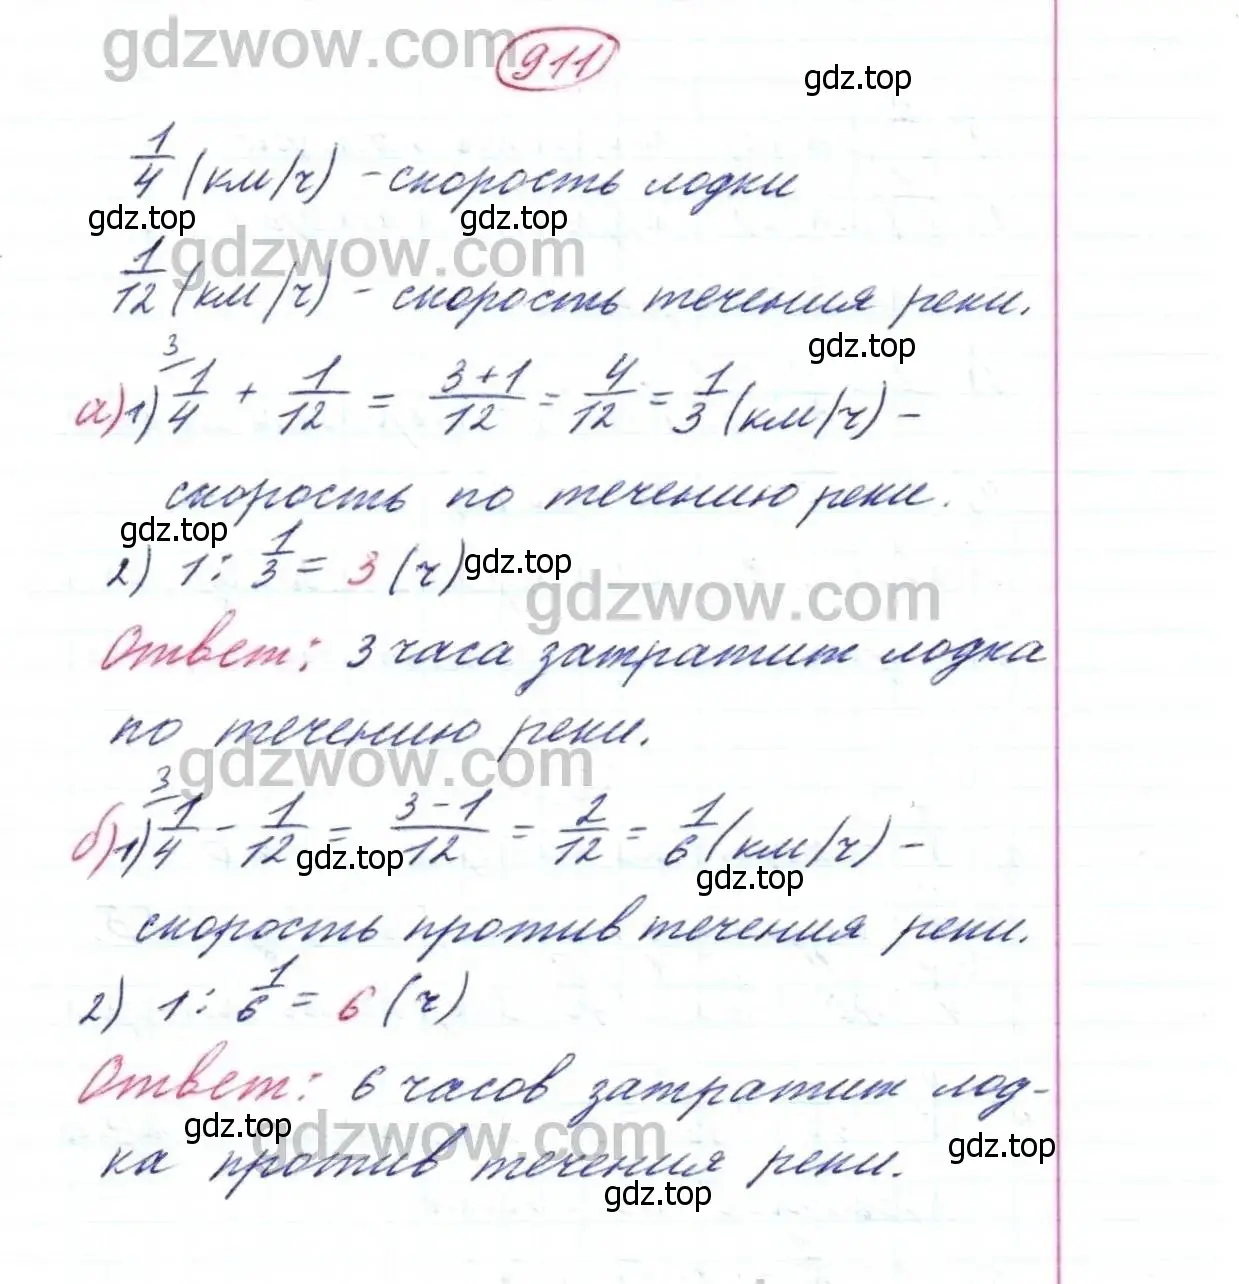 gdzwow.com
911
gdz.top
1/4 (км/ч) - скорость лодки
gdz.top gdz.top
gdzwow.com
1/12 (км/ч) - скорость течения реки.
gdz.top
а) 1) 1/4 ³ + 1/12 = 3+1/12 = 4/12 = 1/3 (км/ч) -
скорость по течению реки.
gdz.top
2) 1 : 1/3 = 3 (ч)
gdz.top
gdzwow.com
Ответ: 3 часа затратит лодка
по течению реки.
gdzwow.com
б) 1) 1/4 ³ - 1/12 = 3-1/12 = 2/12 = 1/6 (км/ч) -
gdz.top gdz.top
скорость против течения реки.
2) 1 : 1/6 = 6 (ч)
Ответ: 6 часов затратит лод-
gdz.top gdzwow.com gdz.top
ка против течения реки.
gdz.top